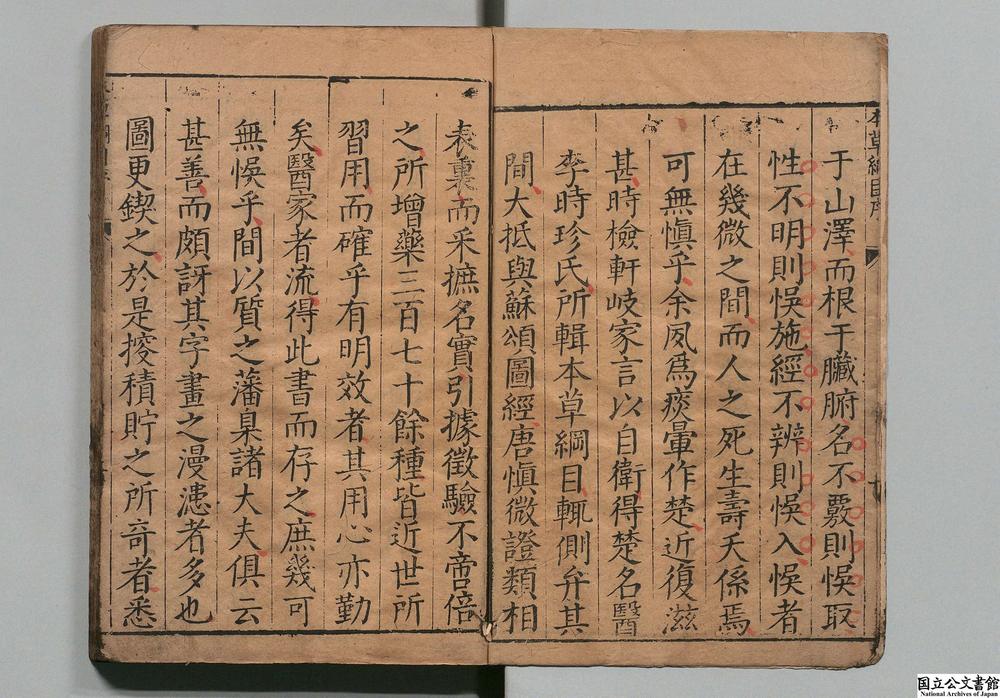 本草綱目序
于山澤而根干臟腑名不覈則悞取
性不明則悞施經不辨則悞入悞者
在幾微之間而人之死生壽夭係焉
可無愼乎余夙爲痰暈作楚近復滋
甚時檢軒岐家言以自衛得楚名醫
李時珍氏所輯本草綱目輒側弁其
間大抵與蘇頌圖經唐愼微證類相
表裏而采摭名實引據徵驗不啻倍
之所增藥三百七十餘種皆近世所
習用而確乎有明效者其用心亦勤
矣醫家者流得此書而存之庶幾可
無悞乎間以質之藩臬諸大夫俱云
甚善而頗訝其字畫之漫漶者多也
圖更鍥之於是搜積貯之所奇者悉
国立公文書館
National Archives of Japan